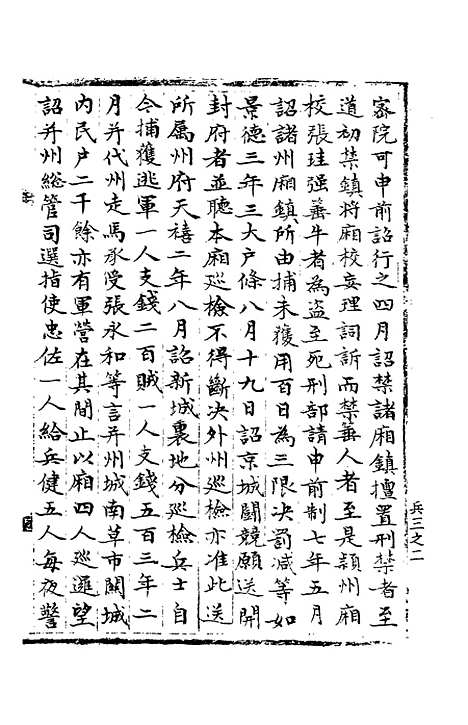 密院可申前詔行之四月詔禁諸廂鎮擅置刑禁者至
道初禁鎮將廂校妄理詞訴而禁筭人者至是潁州廂
校張珪强筭牛者為盜至死刑部請申前制七年五月
詔諸州廂鎮所由捕未獲用百日為三限决罰減等如
景德三年三大戶條八月十九日詔京城鬭競願送開
封府者並聽本廂巡檢不得斷决外州巡檢亦准此送
所屬州府天禧二年八月詔新城裏地分巡檢兵士自
今捕獲逃軍一人支錢二百賊一人支錢五百三年二
月并代州走馬承受張永和等言并州城南草市關城
內民户二千餘亦有軍營在其間止以廂四人巡邏望
詔并州總管司選指使忠佐一人給兵健五人每夜警
兵三之二